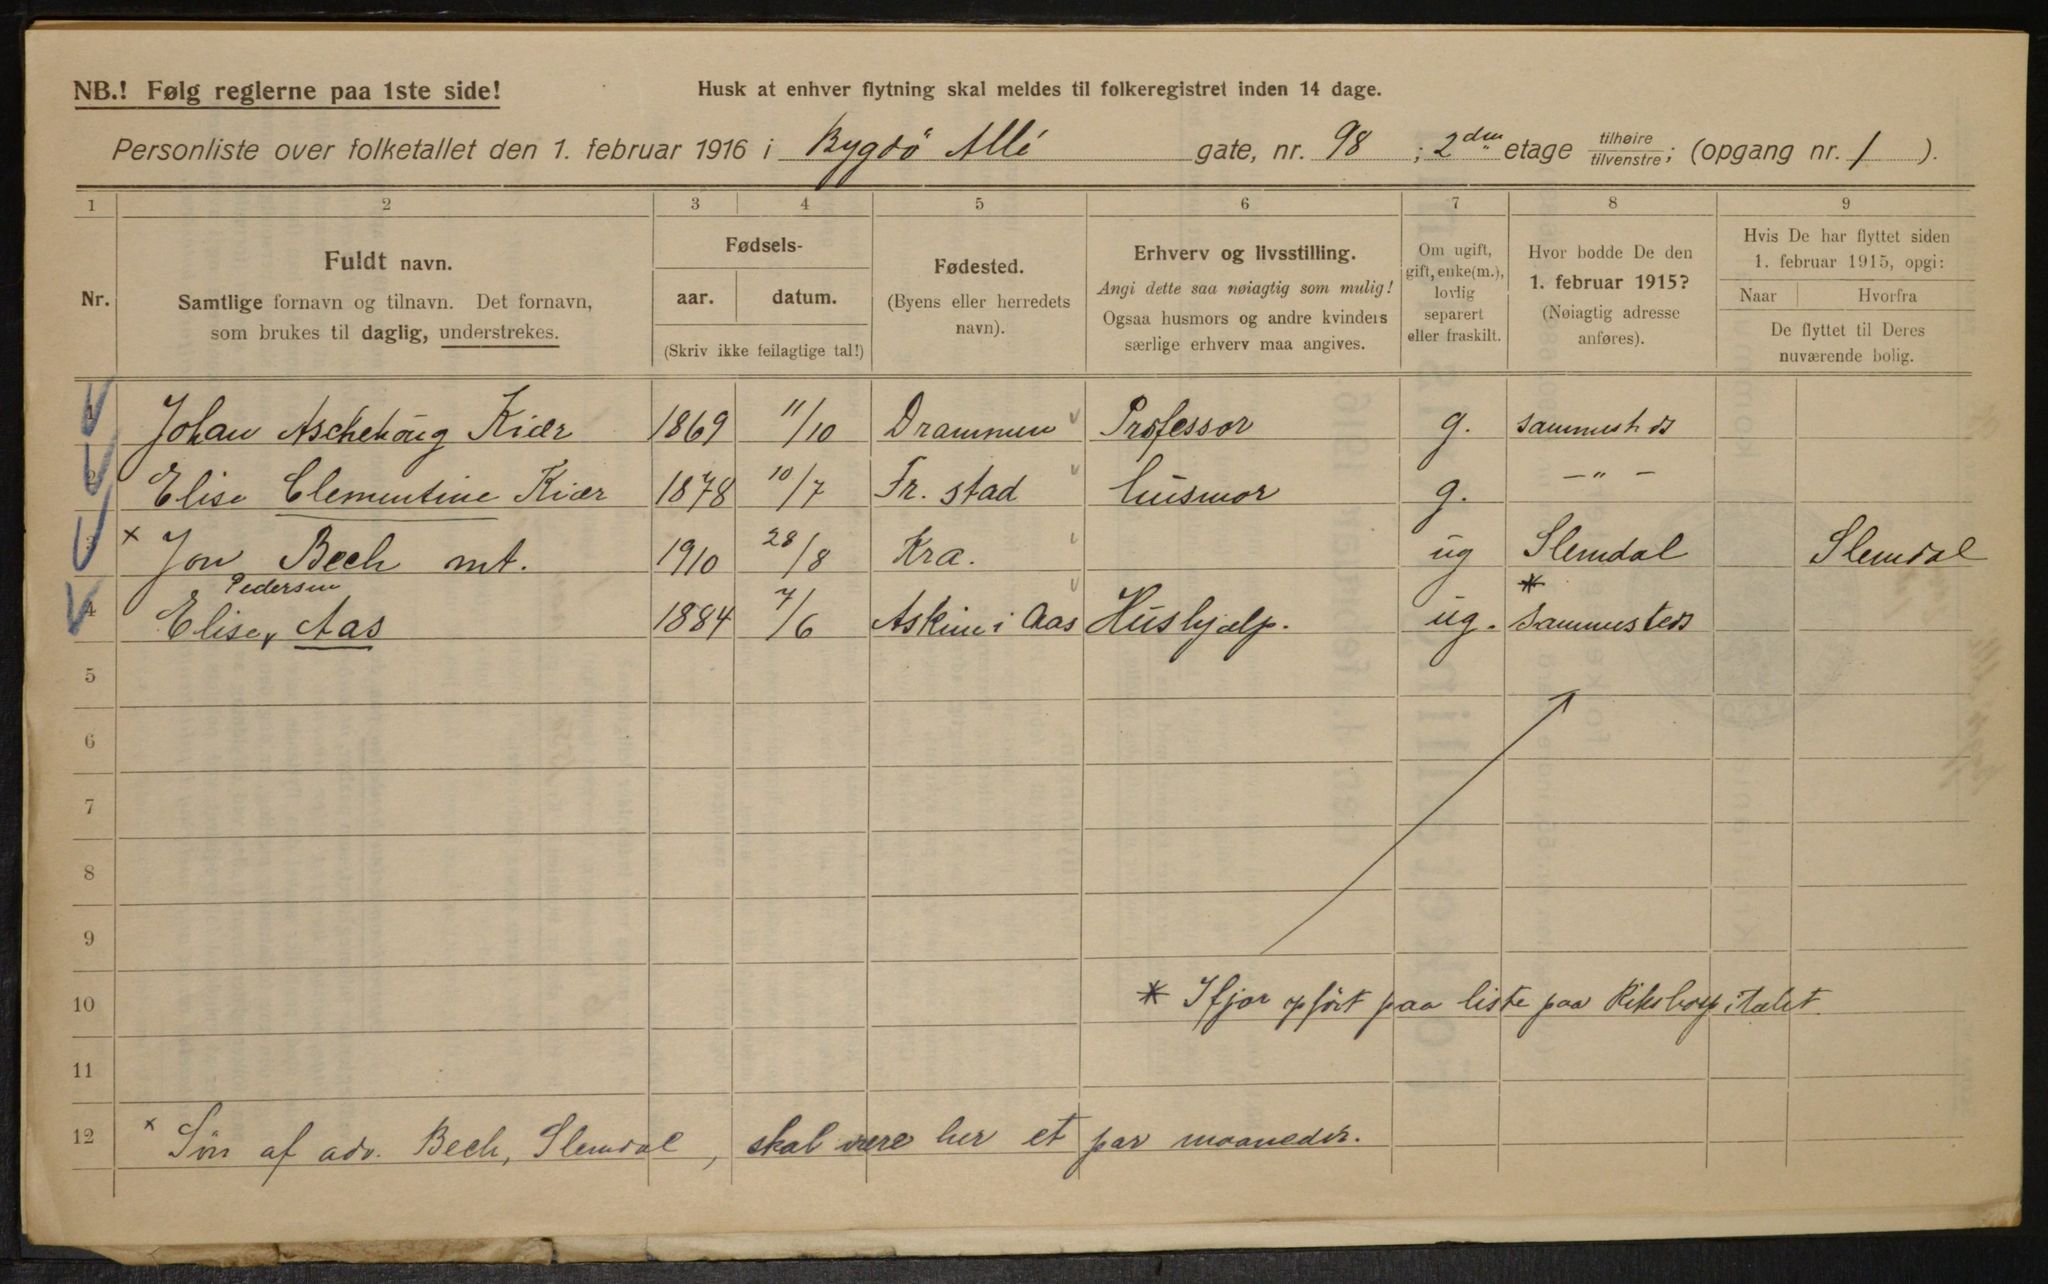 NB.! Følg reglerne paa 1ste side! Husk at enhver flytning skal meldes til folkeregistret inden 14 dage.
Personliste over folketallet den 1. februar 1916 i Bygdö Allé gate, nr. 98 ; 2den etage tilhøire tilvenstre ; (opgang nr. 1 ).
1 2 3 4 5 6 7 8 9
Nr.
Fuldt navn.
Samtlige fornavn og tilnavn. Det fornavn,
som brukes til daglig, understrekes.
Fødsels-
aar. datum.
(Skriv ikke feilagtige tal!)
Fødested.
(Byens eller herredets
navn).
Erhverv og livsstilling.
Angi dette saa nøiagtig som mulig!
Ogsaa husmors og andre kvinders
særlige erhverv maa angives.
Om ugift,
gift, enke(m.),
lovlig
separert
eller fraskilt.
Hvor bodde De den
1. februar 1915?
(Nøiagtig adresse
anføres).
Hvis De har flyttet siden
1. februar 1915, opgi:
Naar Hvorfra
De flyttet til Deres
nuværende bolig.
1 Johan Aschehoug Kiær 1869 11/10 Drammen Professor g. sammesteds
2 Elise Clementine Kiær 1878 10/7 Fr. stad husmor g. — " —
3 x Jon Bech mt. 1910 28/8 Kra. ug Slemdal Slemdal
Pedersen *
4 Elise, Aas 1884 7/6 Askim i Aas Hushjælp. ug. sammesteds
5
6
7
8
9
10 * Ifjor opført paa liste paa Rikshospitalet.
11
12 x Søn af adv. Bech, Slemdal, skal være her et par maaneder.